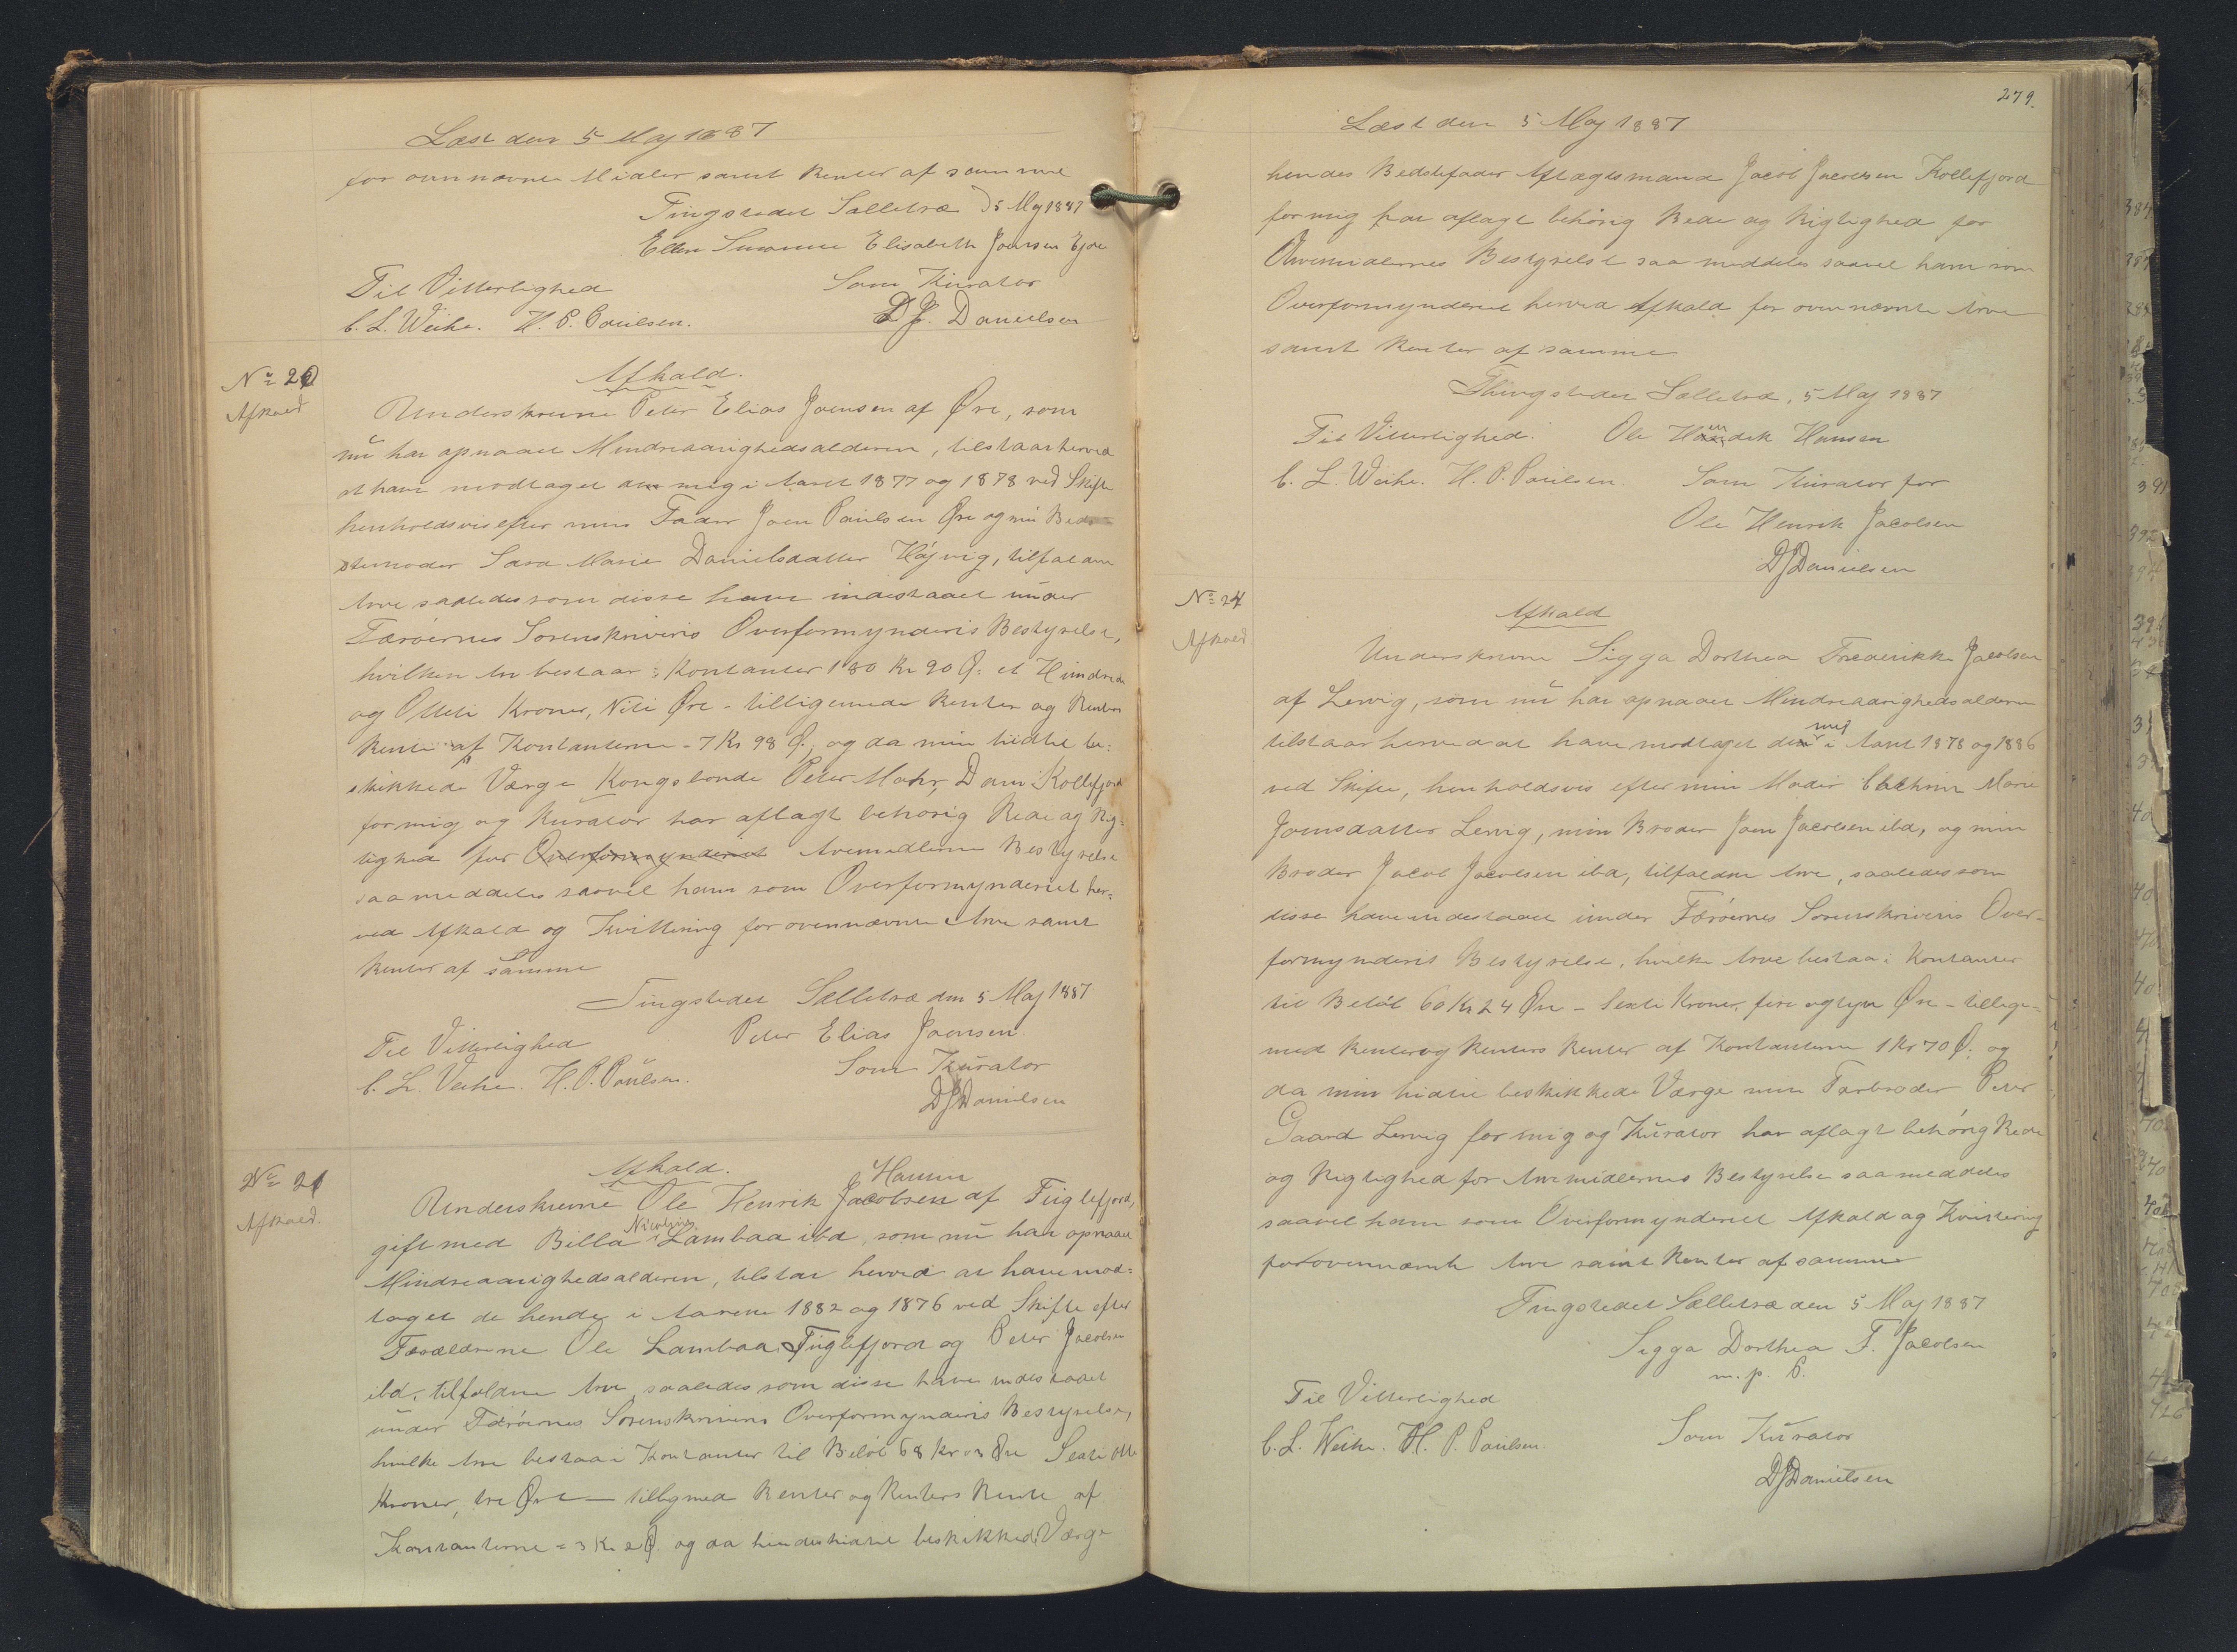 Læst den 5 Maj 1887
for ovennævnte Midler samt Renter af samme
Tingstedet Selletræ d 5 Maj 1887
Ellen Susanne Elisabeth Joensen Ejde
Til Vitterlighed Som Kurator
C. L. Weihe. H. P. Poulsen. DJ. Danielsen
No 20 Afkald.
Afkald Underskrevne Peter Elias Joensen af Øre, som
nu har opnaaet Mindreaarighedsalderen, tilstaar herved
at have modtaget den mig i Aaret 1877 og 1878 ved Skifte
henholdsvis efter min Fader Joen Poulsen Øre og min Bed-
stemoder Sara Marie Danielsdatter Højvig, tilfaldne
Arve saaledes som disse have indestaaet under
Færøernes Sorenskriveris Overformynderis Bestyrelse,
hvilken Arv bestaar i Kontanter 180 Kr 90 Ø. et Hundrede
og Otteti Kroner, Niti Øre - tilligemed Renter og Renters
Rente af Kontanterne - 7 Kr 98 Ø, og da min hidtil be-
skikkede Værge Kongsbonde Peter Mohr Dam Kollefjord
for mig og Kurator har aflagt behørig Rede og Rig-
tighed for Overformynderiet Arvemidlerne Bestyrelse
saa meddeles saavel ham som Overformynderiet her-
ved Afkald og Kvittering for ovennævnte Arv samt
Renter af samme
Tingstedet Selletræ den 5 Maj 1887
Til Vitterlighed Peter Elias Joensen
C. L. Weihe. H. P. Poulsen. Som Kurator
DJDanielsen
No 21 Afkald.
Afkald. Underskrevne Ole Henrik Jacobsen Hansen af Fuglefjord,
gift med Billa Nicoline Lambaa ibd, som nu har opnaaet
Mindreaarighedsalderen, tilstaar herved at have mod-
taget de hende i Aarene 1882 og 1876 ved Skifte efter
Forældrene Ole Lambaa, Fuglefjord og Peter Jacobsen
ibd. tilfaldne Arve, saaledes som disse have indestaaet
under Færøernes Sorenskriveris Overformynderis Bestyrelse,
hvilke Arve bestaa i Kontanter til Beløb 68 Kr 03 Øre Sexti otte
Kroner, tre Øre - tilligemed Renter og Renters Rente af
Kontanterne = 3 Kr 2 Ø. og da hendes hidtil beskikkede Værge
279.
Læst den 5 Maj 1887
hendes Bedstefader Aftægtsmand Jacob Jacobsen Kollefjord
for mig har aflagt behørig Rede og Rigtighed for
Arvemidlernes Bestyrelse saa meddeles saavel ham som
Overformynderiet herved Afkald for ovennævnte Arve
samt Renter af samme
Thingstedet Selletræ, 5 Maj 1887
Til Vitterlighed. Ole Hendrik Hansen
C. L. Weihe. H. P. Poulsen. Som Kurator for
Ole Henrik Jacobsen
DJDanielsen
No 24 Afkald
Afkald Underskrevne Sigga Dorthea Frederikke Jacobsen
af Lervig, som nu har opnaaet Mindreaarighedsalderen
tilstaar herved at have modtaget den mig i Aaret 1878 og 1886
ved Skifte, henholdsvis efter min Moder Cathrine Marie
Joensdatter Lervig, min Broder Joen Jacobsen ibd, og min
Broder Jacob Jacobsen ibd, tilfaldne Arve, saaledes som
disse have indestaaet under Færøernes Sorenskriveris Over-
formynderis Bestyrelse, hvilke Arve bestaa i Kontanter
til Beløb 60 Kr 24 Øre - Sexti Kroner, fire og tyve Øre - tillige-
med Renter og Renters Renter af Kontanterne 1 Kr 70 Ø. og
da min hidtil beskikkede Værge min Farbroder Peter
Gaard Lervig for mig og Kurator har aflagt behørig Rede
og Rigtighed for Arvemidlernes Bestyrelse saa meddeles
saavel ham som Overformynderiet Afkald og Kvittering
for ovennævnte Arve samt Renter af samme
Tingstedet Selletræ den 5 Maj 1887
Sigga Dorthea F. Jacobsen
m. p. P.
Til Vitterlighed
C. L. Weihe. H. P. Poulsen. Som Kurator
DJDanielsen